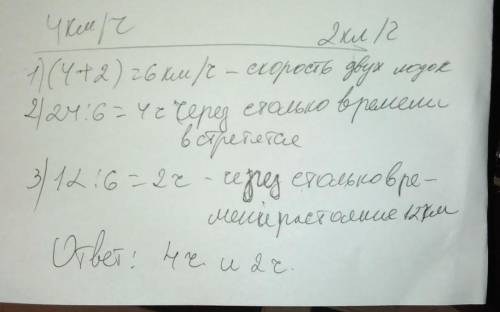 4км/ч 2км/ч
1) (4+2)=6км/ч - скорость двух лодок
2) 24:6=4ч через столько времени
встретятся
3) 12:6=2ч - через столько вре-
мени растояние 12км
Ответ: 4ч. и 2ч.